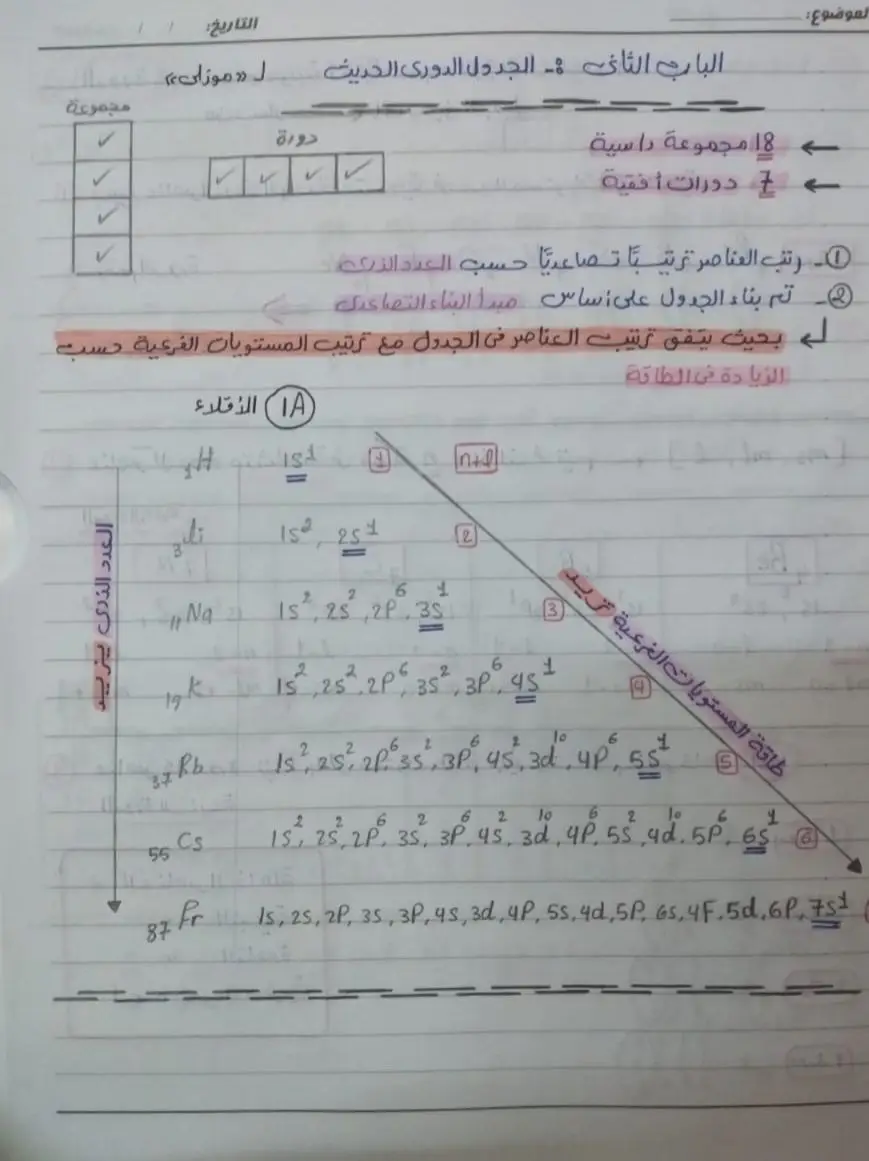 الموضوع:
التاريخ: / /
الباب الثاني :- الجدول الدوري الحديث لـ «موزلى»
مجموعة
دورة
← 18 مجموعة رأسية
← 7 دورات أفقية
①- رتب العناصر ترتيبًا تصاعديًا حسب العدد الذرى
②- تم بناء الجدول على أساس مبدأ البناء التصاعدى
بحيث يتفق ترتيب العناصر فى الجدول مع ترتيب المستويات الفرعية حسب
الزيادة فى الطاقة
1A الأقلاء
₁H 1s¹ 1 n+l
₃Li 1s², 2s¹ 2
₁₁Na 1s², 2s², 2P⁶, 3s¹ 3
₁₉K 1s², 2s², 2P⁶, 3s², 3P⁶, 4s¹ 4
₃₇Rb 1s², 2s², 2P⁶, 3s², 3P⁶, 4s², 3d¹⁰, 4P⁶, 5s¹ 5
₅₅Cs 1s², 2s², 2P⁶, 3s², 3P⁶, 4s², 3d¹⁰, 4P⁶, 5s², 4d¹⁰, 5P⁶, 6s¹ 6
₈₇Fr 1s, 2s, 2P, 3s, 3P, 4s, 3d, 4P, 5s, 4d, 5P, 6s, 4F, 5d, 6P, 7s¹
العدد الذرى يزيد
طاقة المستويات الفرعية تزيد